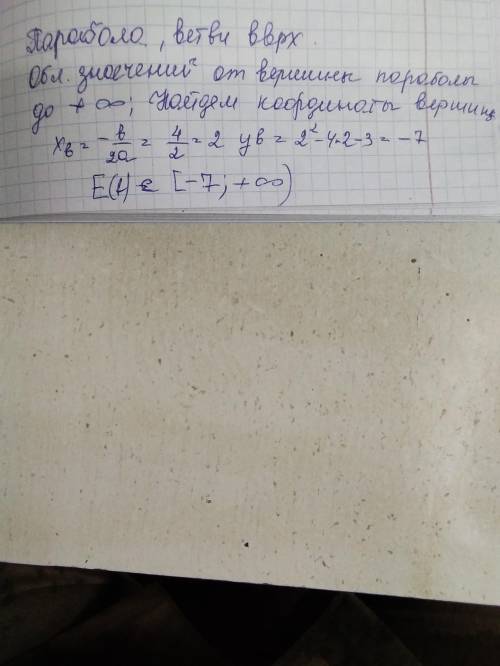 Парабола, ветви вврх.
Обл. значений от вершины параболы
до +∞; Найдем координаты вершины
xв = -в/2a = 4/2 = 2 yв = 2²-4·2-3 = -7
E(f) ∈ [-7; +∞)